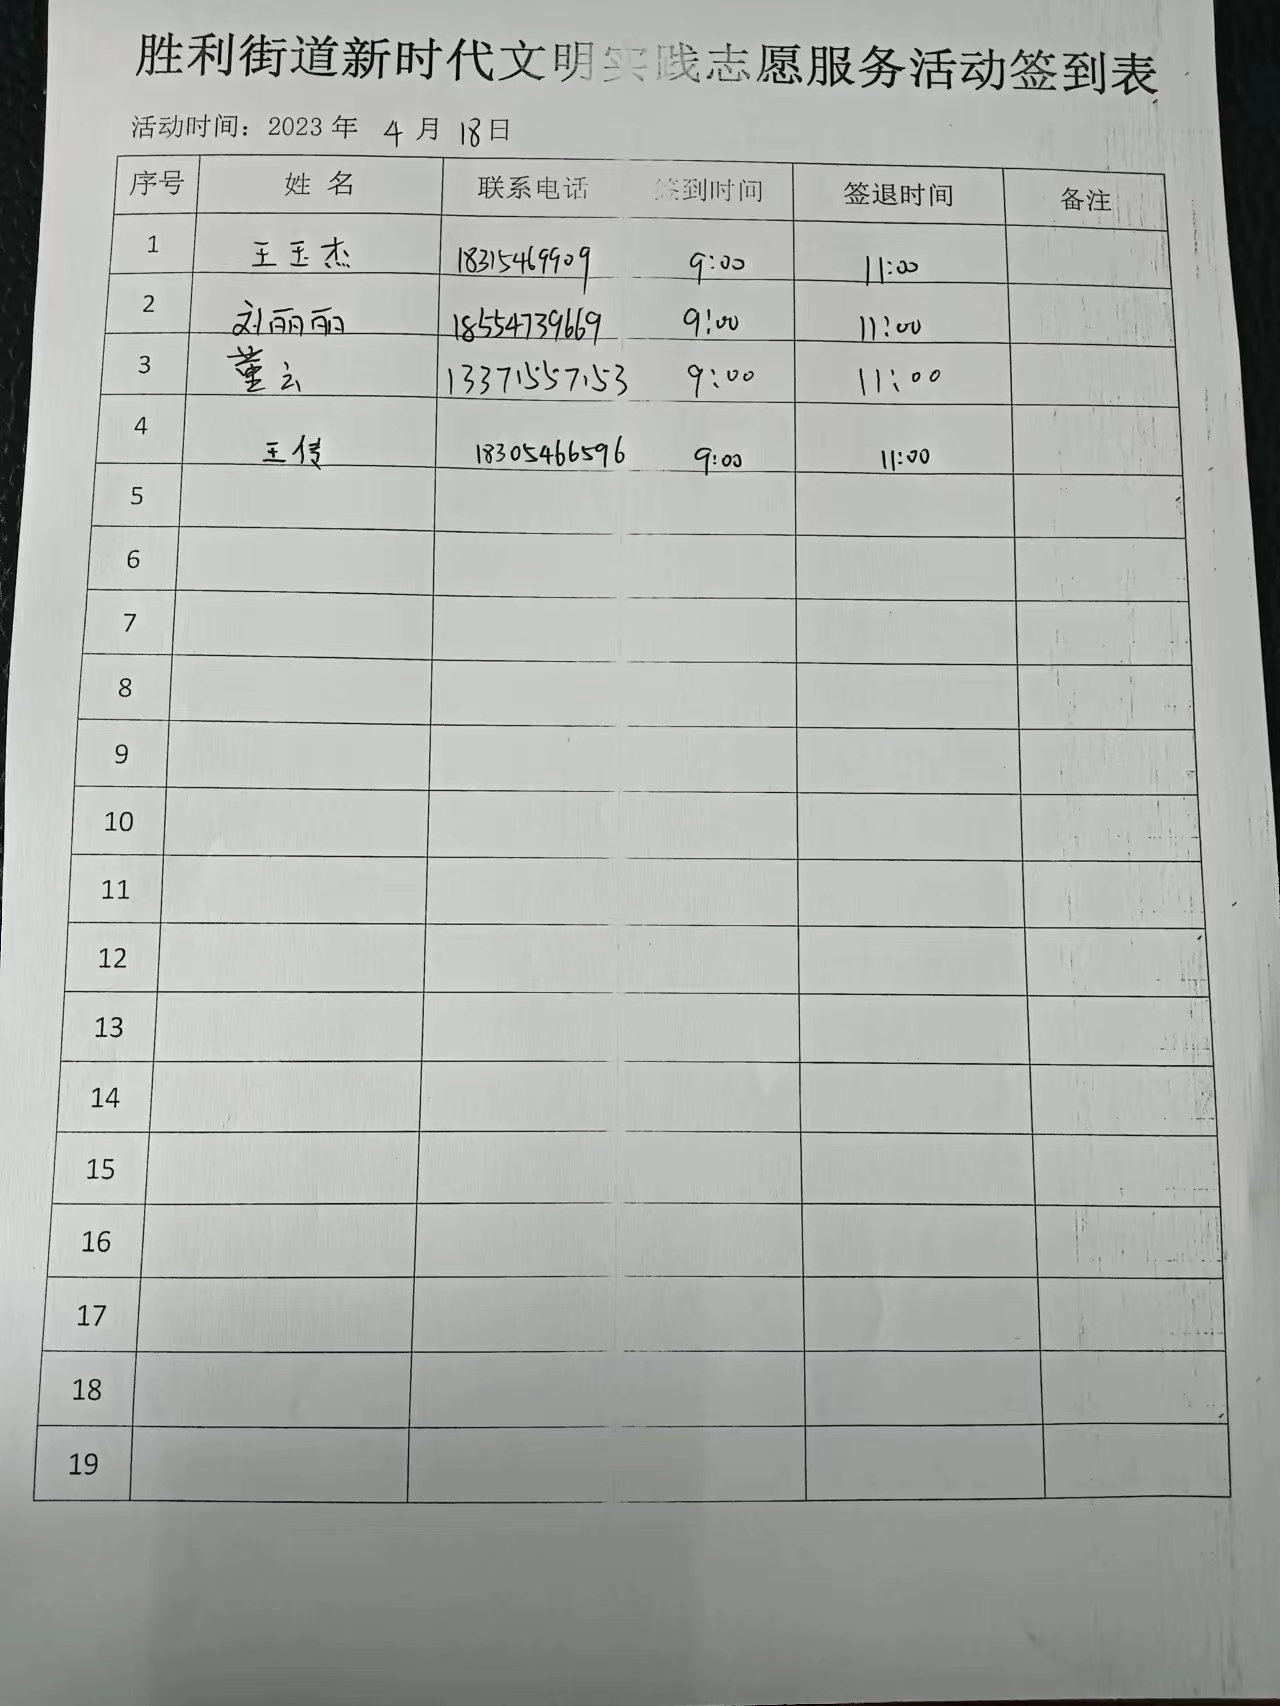 胜利街道新时代文明实践志愿服务活动签到表
活动时间：2023 年 4 月 18日
序号 姓 名 联系电话 签到时间 签退时间 备注
1 王玉杰 18315469909 9:00 11:00
2 刘丽丽 18554739669 9:00 11:00
3 董云 13371557153 9:00 11:00
4 王倩 18305466596 9:00 11:00
5
6
7
8
9
10
11
12
13
14
15
16
17
18
19